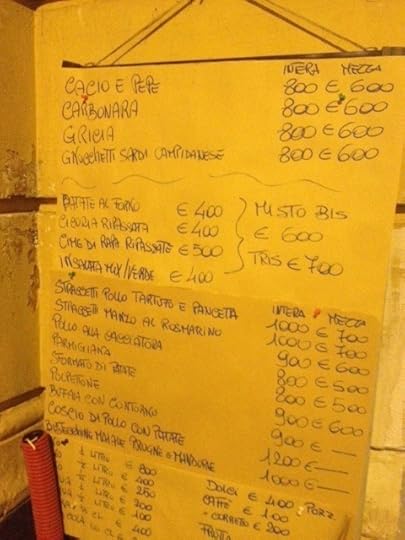 INTERA MEZZA
CACIO E PEPE 800 € 600
CARBONARA 800 € 600
GRICIA 800 € 600
GNOCCHETTI SARDI CAMPIDANESE 800 € 600
PATATE AL FORNO € 400
CICORIA RIPASSATA € 400
CIME DI RAPA RIPASSATE € 500
INSALATA MIX/VERDE € 400
MISTO BIS
€ 600
TRIS € 700
INTERA MEZZA
STRACCETTI POLLO TARTUFO E PANCETTA 1000 € 700
STRACCETTI MANZO AL ROSMARINO 1000 € 700
POLLO ALLA CACCIATORA 900 € 600
PARMIGIANA 800 € 500
SFORMATO DI PATATE 800 € 500
POLPETTONE 900 € 600
BUFALA CON CONTORNO 900 —
COSCIO DI POLLO CON PATATE 1200 € —
MAIALE PRUGNE E MANDORLE 1000 € —
1/2 LITRO € 800
LITRO € 400
LITRO € 250
€ 300
€ 200
CL € 400
COLA
DOLCI € 400 PORZ.
CAFFE € 100
- CORRETTO € 200
FRUTTA